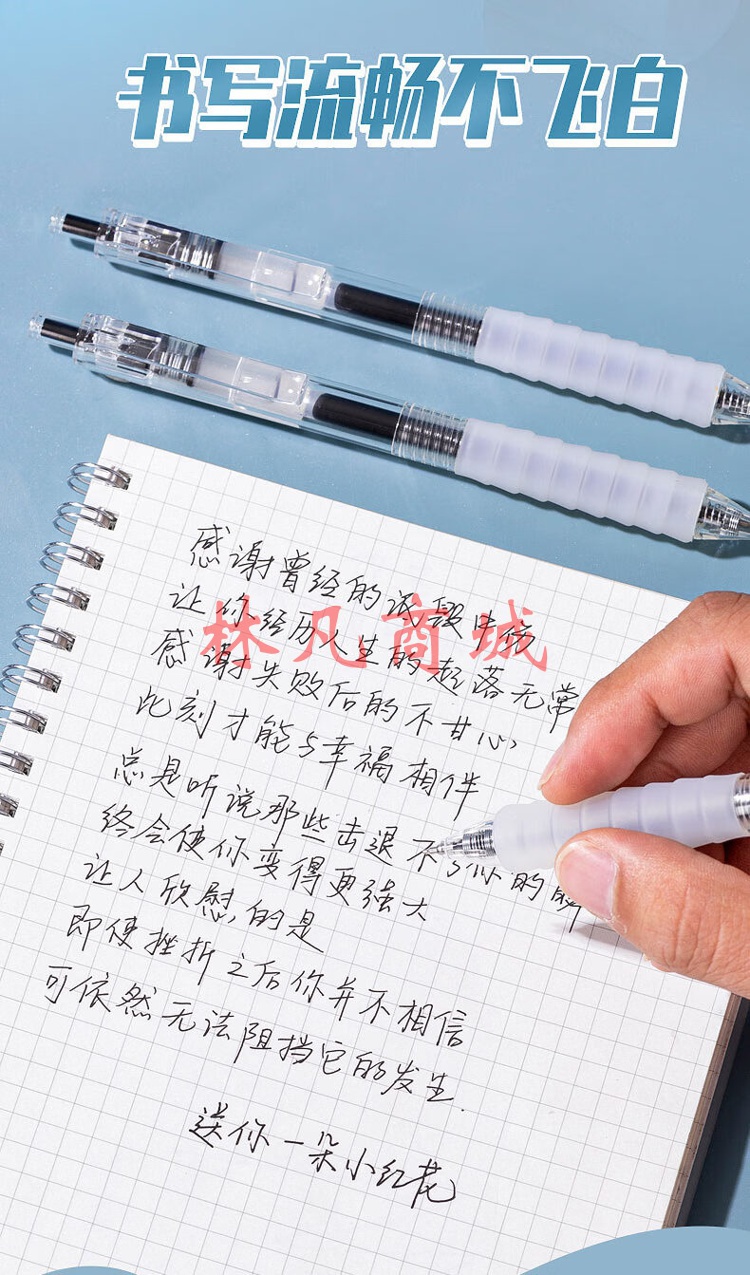 书写流畅不飞白
感谢曾经的那段中伤
让你经历人生的起落无常
感谢失败后的不甘心,
此刻才能与幸福相伴
总是听说那些击退不了你的
终会使你变得更强大
让人欣慰,的是
即使挫折之后你并不相信
可依然无法阻挡它的发生.
送你一朵小红花
林凡商城